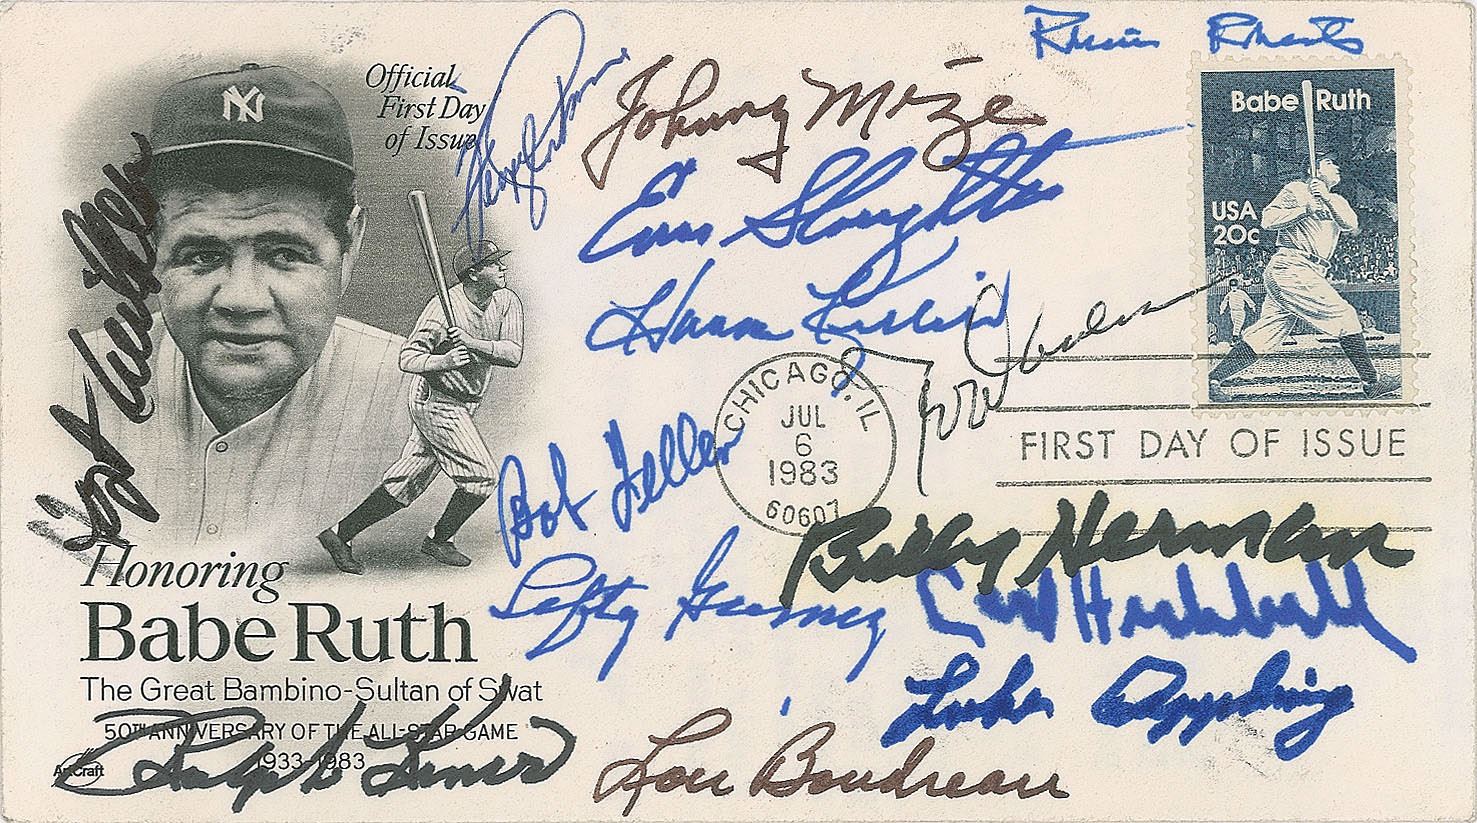 Robin Roberts
Official
First Day
of Issue
Johnny Mize
NY
Babe Ruth
USA
20c
Enos Slaughter
Hoyt Wilhelm
CHICAGO, IL
JUL
6
1983
60607
FIRST DAY OF ISSUE
Bob Feller
Billy Herman
Lefty Gomez
Carl Hubbell
Honoring
Babe Ruth
The Great Bambino-Sultan of Swat
50TH ANNIVERSARY OF THE ALL-STAR GAME
1933-1983
ArtCraft
Luke Appling
Ralph Kiner
Lou Boudreau